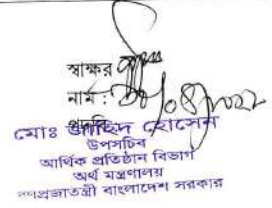 স্বাক্ষর
নাম :
পদবি
মোঃ জাহিদ হোসেন
উপসচিব
আর্থিক প্রতিষ্ঠান বিভাগ
অর্থ মন্ত্রণালয়
গণপ্রজাতন্ত্রী বাংলাদেশ সরকার